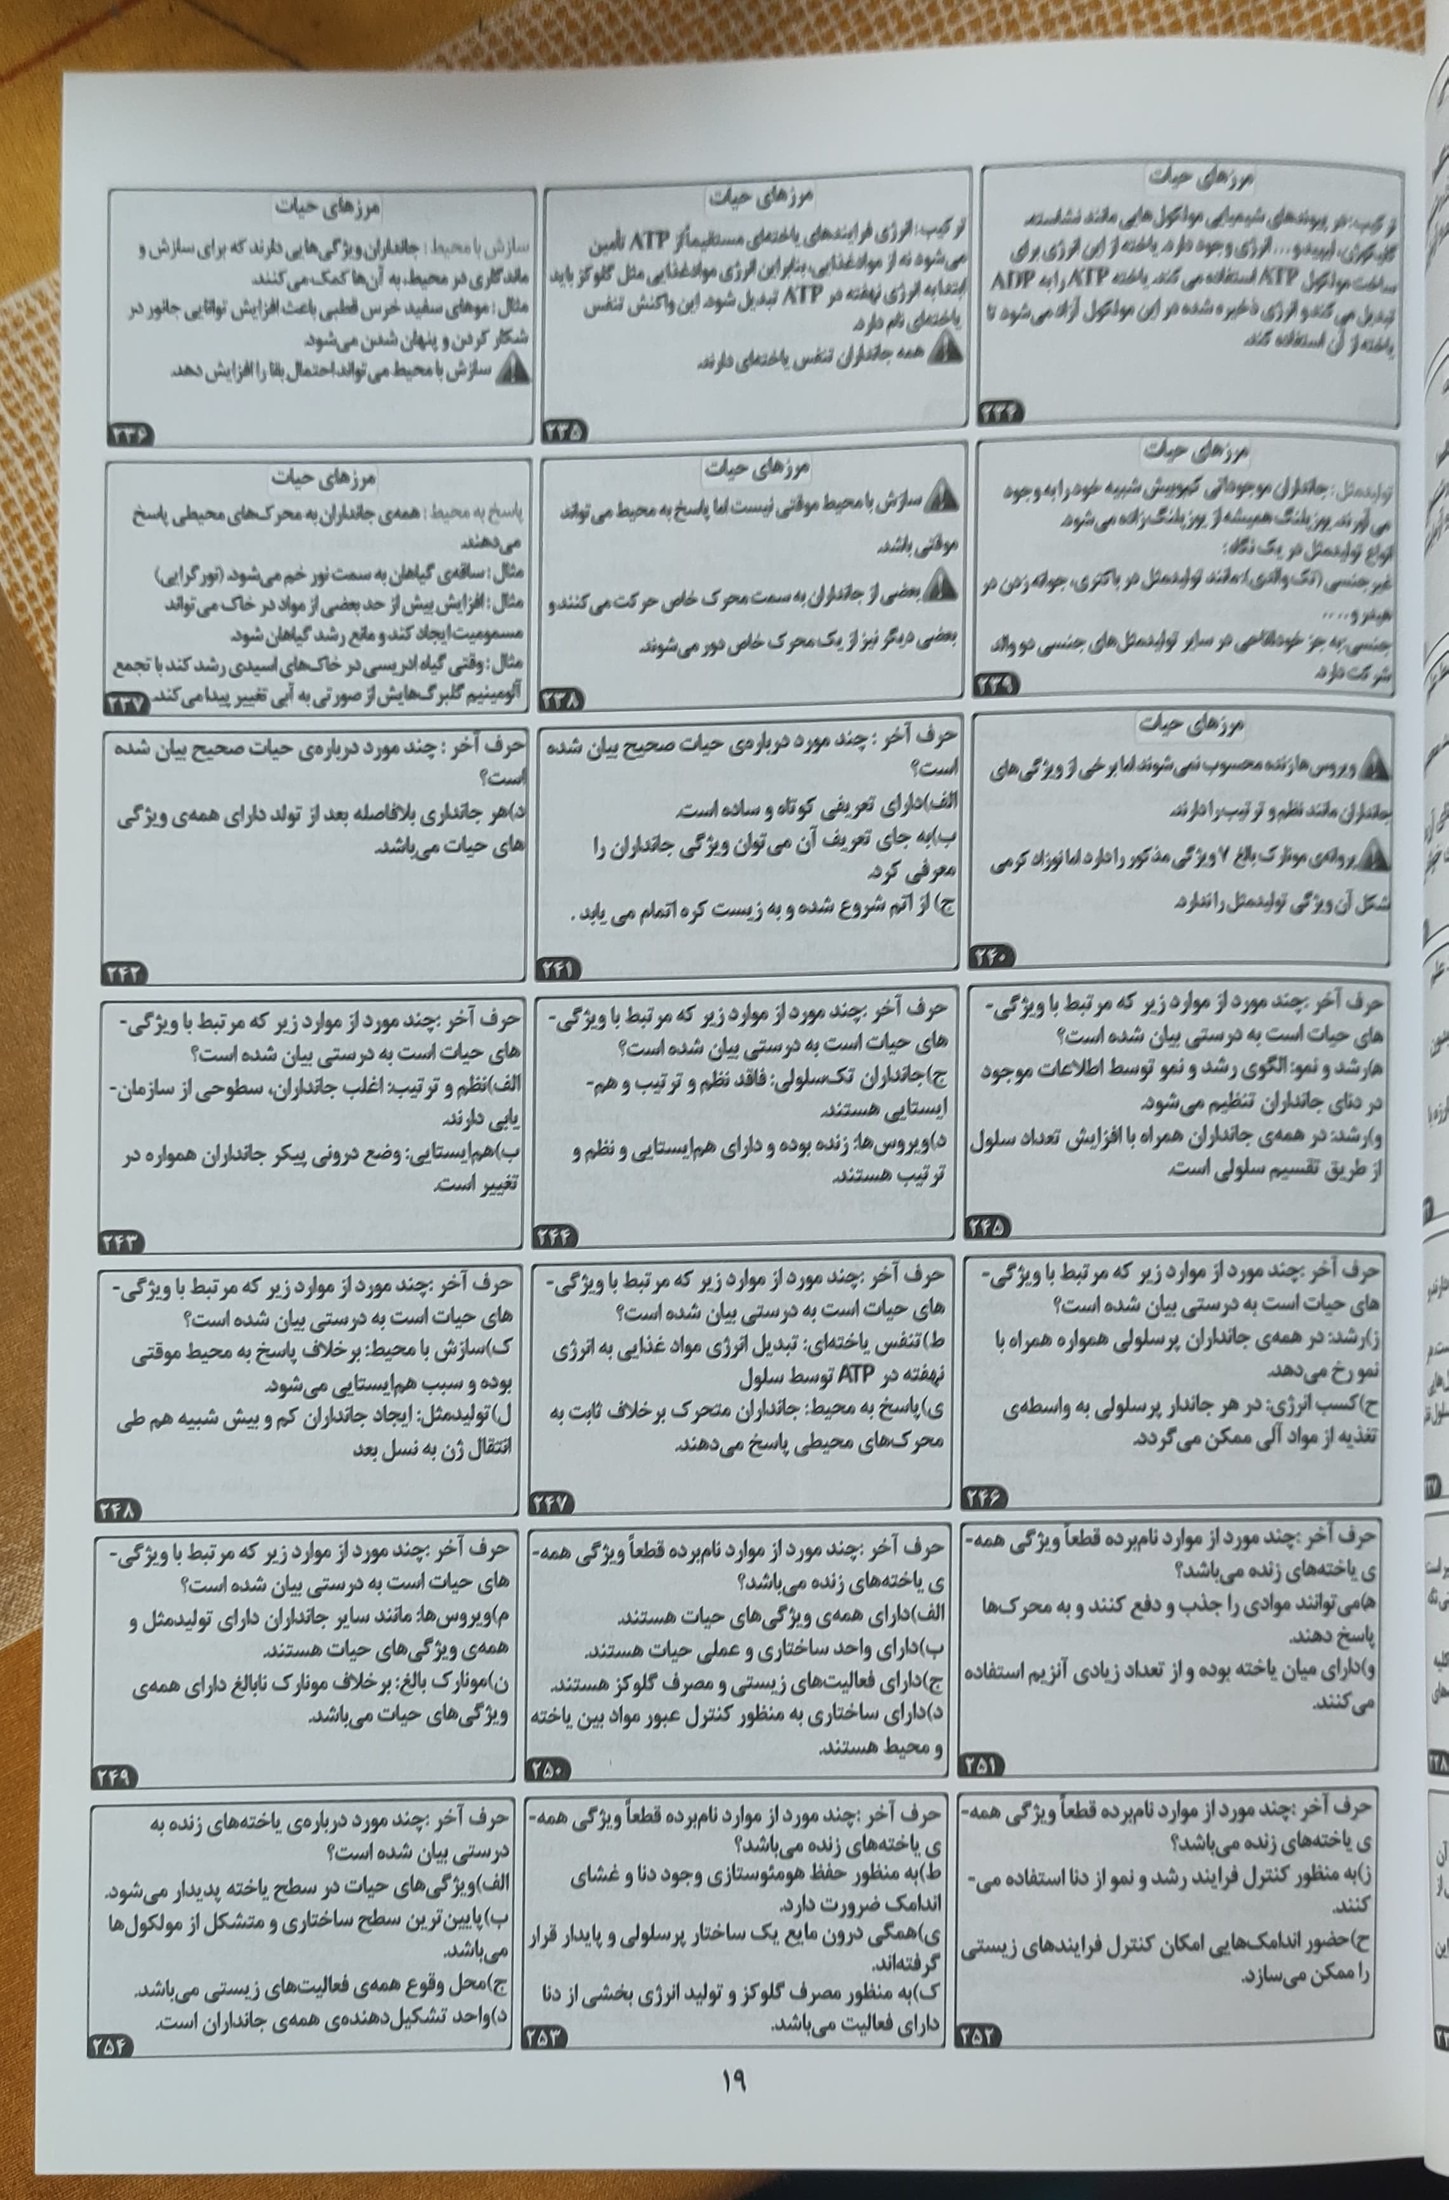 مرزهای حیات
ترکیب: در پیوندهای شیمیایی مولکول‌هایی مانند نشاسته،
گلیکوژن، لیپید و... انرژی وجود دارد. یاخته از این انرژی برای
ساخت مولکول ATP استفاده می کند. یاخته ATP را به ADP
تبدیل می کند و انرژی ذخیره شده در این مولکول آزاد می‌شود تا
یاخته از آن استفاده کند.
۲۳۴
مرزهای حیات
ترکیب: انرژی فرایندهای یاخته‌ای مستقیماً از ATP تأمین
می‌شود نه از مواد غذایی، بنابراین انرژی مواد غذایی مثل گلوکز باید
ابتدا به انرژی نهفته در ATP تبدیل شود. این واکنش تنفس
یاخته‌ای نام دارد.
همه جانداران تنفس یاخته‌ای دارند.
۲۳۵
مرزهای حیات
سازش با محیط: جانداران ویژگی‌هایی دارند که برای سازش و
ماندگاری در محیط، به آن‌ها کمک می‌کنند.
مثال: موهای سفید خرس قطبی باعث افزایش توانایی جانور در
شکار کردن و پنهان شدن می‌شود.
سازش با محیط می‌تواند احتمال بقا را افزایش دهد.
۲۳۶
مرزهای حیات
تولیدمثل: جانداران موجوداتی کم‌وبیش شبیه خود را به وجود
می آورند. یوزپلنگ همیشه از یوزپلنگ زاده می‌شود.
انواع تولیدمثل در یک نگاه:
غیر جنسی (تک والدی): مانند تولیدمثل در باکتری، جوانه زدن در
هیدر و....
جنسی: به جز خودلقاحی در سایر تولیدمثل‌های جنسی دو والد
شرکت دارد.
۲۳۹
مرزهای حیات
سازش با محیط موقتی نیست اما پاسخ به محیط می‌تواند
موقتی باشد.
بعضی از جانداران به سمت محرک خاص حرکت می‌کنند و
بعضی دیگر نیز از یک محرک خاص دور می‌شوند.
۲۳۸
مرزهای حیات
پاسخ به محیط: همه‌ی جانداران به محرک‌های محیطی پاسخ
می‌دهند.
مثال: ساقه‌ی گیاهان به سمت نور خم می‌شود. (نورگرایی)
مثال: افزایش بیش از حد بعضی از مواد در خاک می‌تواند
مسمومیت ایجاد کند و مانع رشد گیاهان شود.
مثال: وقتی گیاه ادریسی در خاک‌های اسیدی رشد کند با تجمع
آلومینیم گلبرگ‌هایش از صورتی به آبی تغییر پیدا می‌کند.
۲۳۷
مرزهای حیات
ویروس‌ها زنده محسوب نمی‌شوند اما برخی از ویژگی‌های
جانداران مانند نظم و ترتیب را دارند.
پروانه‌ی مونارک بالغ ۷ ویژگی مذکور را دارد اما نوزاد کرمی
شکل آن ویژگی تولیدمثل را ندارد.
۲۴۰
حرف آخر : چند مورد درباره‌ی حیات صحیح بیان شده
است؟
الف)دارای تعریفی کوتاه و ساده است.
ب)به جای تعریف آن می‌توان ویژگی جانداران را
معرفی کرد.
ج) از اتم شروع شده و به زیست کره اتمام می یابد .
۲۴۱
حرف آخر : چند مورد درباره‌ی حیات صحیح بیان شده
است؟
د)هر جانداری بلافاصله بعد از تولد دارای همه‌ی ویژگی
های حیات می‌باشد.
۲۴۲
حرف آخر :چند مورد از موارد زیر که مرتبط با ویژگی-
های حیات است به درستی بیان شده است؟
ه)رشد و نمو: الگوی رشد و نمو توسط اطلاعات موجود
در دنای جانداران تنظیم می‌شود.
و)رشد: در همه‌ی جانداران همراه با افزایش تعداد سلول
از طریق تقسیم سلولی است.
۲۴۵
حرف آخر :چند مورد از موارد زیر که مرتبط با ویژگی-
های حیات است به درستی بیان شده است؟
ج)جانداران تک‌سلولی: فاقد نظم و ترتیب و هم-
ایستایی هستند.
د)ویروس‌ها: زنده بوده و دارای هم‌ایستایی و نظم و
ترتیب هستند.
۲۴۴
حرف آخر :چند مورد از موارد زیر که مرتبط با ویژگی-
های حیات است به درستی بیان شده است؟
الف)نظم و ترتیب: اغلب جانداران، سطوحی از سازمان-
یابی دارند.
ب)هم‌ایستایی: وضع درونی پیکر جانداران همواره در
تغییر است.
۲۴۳
حرف آخر :چند مورد از موارد زیر که مرتبط با ویژگی-
های حیات است به درستی بیان شده است؟
ز)رشد: در همه‌ی جانداران پرسلولی همواره همراه با
نمو رخ می‌دهد.
ح)کسب انرژی: در هر جاندار پرسلولی به واسطه‌ی
تغذیه از مواد آلی ممکن می‌گردد.
۲۴۶
حرف آخر :چند مورد از موارد زیر که مرتبط با ویژگی-
های حیات است به درستی بیان شده است؟
ط)تنفس یاخته‌ای: تبدیل انرژی مواد غذایی به انرژی
نهفته در ATP توسط سلول
ی)پاسخ به محیط: جانداران متحرک برخلاف ثابت به
محرک‌های محیطی پاسخ می‌دهند.
۲۴۷
حرف آخر :چند مورد از موارد زیر که مرتبط با ویژگی-
های حیات است به درستی بیان شده است؟
ک)سازش با محیط: برخلاف پاسخ به محیط موقتی
بوده و سبب هم‌ایستایی می‌شود.
ل)تولیدمثل: ایجاد جانداران کم و بیش شبیه هم طی
انتقال ژن به نسل بعد
۲۴۸
حرف آخر :چند مورد از موارد نام‌برده قطعاً ویژگی همه-
ی یاخته‌های زنده می‌باشد؟
ه)می‌توانند موادی را جذب و دفع کنند و به محرک‌ها
پاسخ دهند.
و)دارای میان یاخته بوده و از تعداد زیادی آنزیم استفاده
می‌کنند.
۲۵۱
حرف آخر :چند مورد از موارد نام‌برده قطعاً ویژگی همه-
ی یاخته‌های زنده می‌باشد؟
الف)دارای همه‌ی ویژگی‌های حیات هستند.
ب)دارای واحد ساختاری و عملی حیات هستند.
ج)دارای فعالیت‌های زیستی و مصرف گلوکز هستند.
د)دارای ساختاری به منظور کنترل عبور مواد بین یاخته
و محیط هستند.
۲۵۰
حرف آخر :چند مورد از موارد زیر که مرتبط با ویژگی-
های حیات است به درستی بیان شده است؟
م)ویروس‌ها: مانند سایر جانداران دارای تولیدمثل و
همه‌ی ویژگی‌های حیات هستند.
ن)مونارک بالغ: برخلاف مونارک نابالغ دارای همه‌ی
ویژگی‌های حیات می‌باشد.
۲۴۹
حرف آخر :چند مورد از موارد نام‌برده قطعاً ویژگی همه-
ی یاخته‌های زنده می‌باشد؟
ز)به منظور کنترل فرایند رشد و نمو از دنا استفاده می-
کنند.
ح)حضور اندامک‌هایی امکان کنترل فرایندهای زیستی
را ممکن می‌سازد.
۲۵۲
حرف آخر :چند مورد از موارد نام‌برده قطعاً ویژگی همه-
ی یاخته‌های زنده می‌باشد؟
ط)به منظور حفظ هومئوستازی وجود دنا و غشای
اندامک ضرورت دارد.
ی)همگی درون مایع یک ساختار پرسلولی و پایدار قرار
گرفته‌اند.
ک)به منظور مصرف گلوکز و تولید انرژی بخشی از دنا
دارای فعالیت می‌باشد.
۲۵۳
حرف آخر :چند مورد درباره‌ی یاخته‌های زنده به
درستی بیان شده است؟
الف)ویژگی‌های حیات در سطح یاخته پدیدار می‌شود.
ب)پایین‌ترین سطح ساختاری و متشکل از مولکول‌ها
می‌باشد.
ج)محل وقوع همه‌ی فعالیت‌های زیستی می‌باشد.
د)واحد تشکیل‌دهنده‌ی همه‌ی جانداران است.
۲۵۴
۱۹